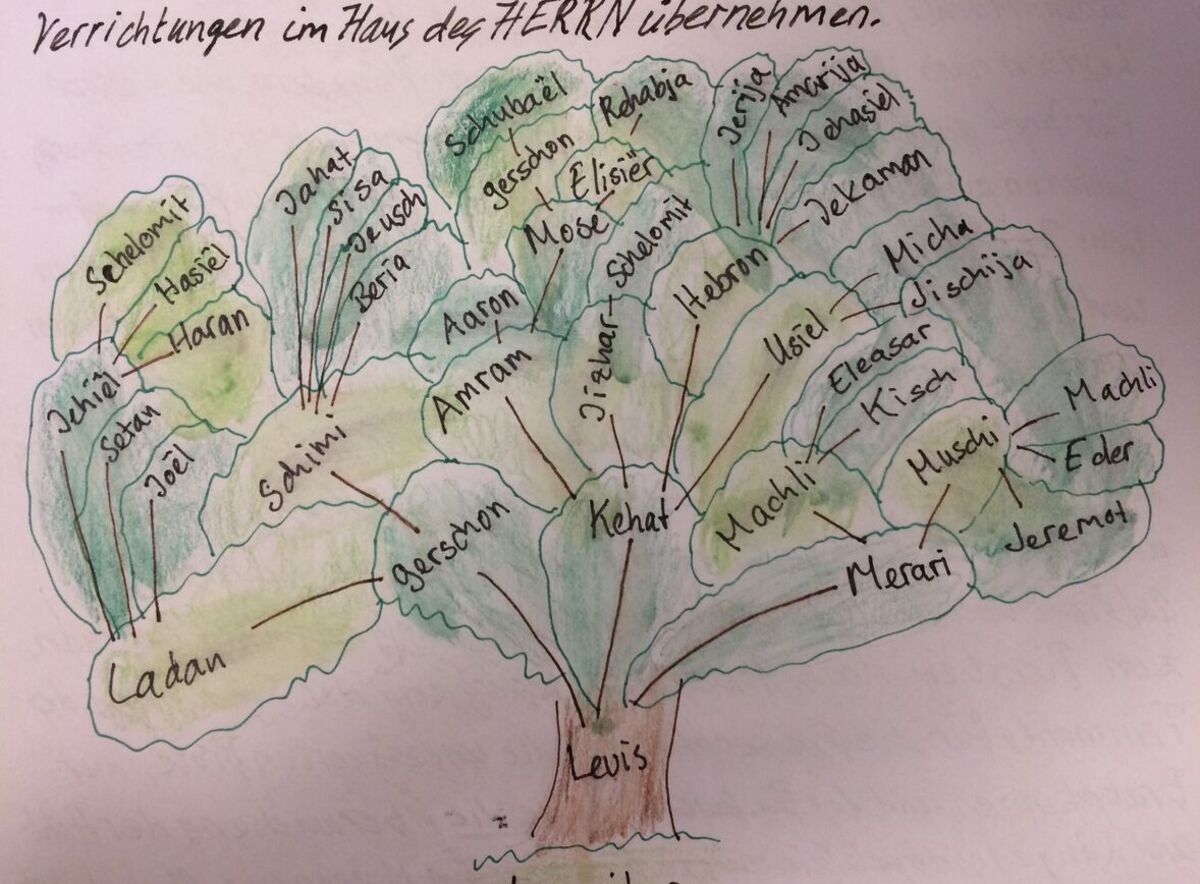 Verrichtungen im Haus des HERRN übernehmen.
Schubaël
Rehabja
Jerija
Amarija
Jehasiel
Jekaman
gerschon
Elisiër
Mose
Schelomit
Jahat
Sisa
Jeusch
Beria
Schelomit
Hasiël
Haran
Aaron
Hebron
Micha
Jischija
Jehiël
Setan
Joël
Schimi
Amram
Jizhar
Usiel
Eleasar
Kisch
Machli
Eder
Jeremot
Muschi
Machli
gerschon
Kehat
Merari
Ladan
Levis